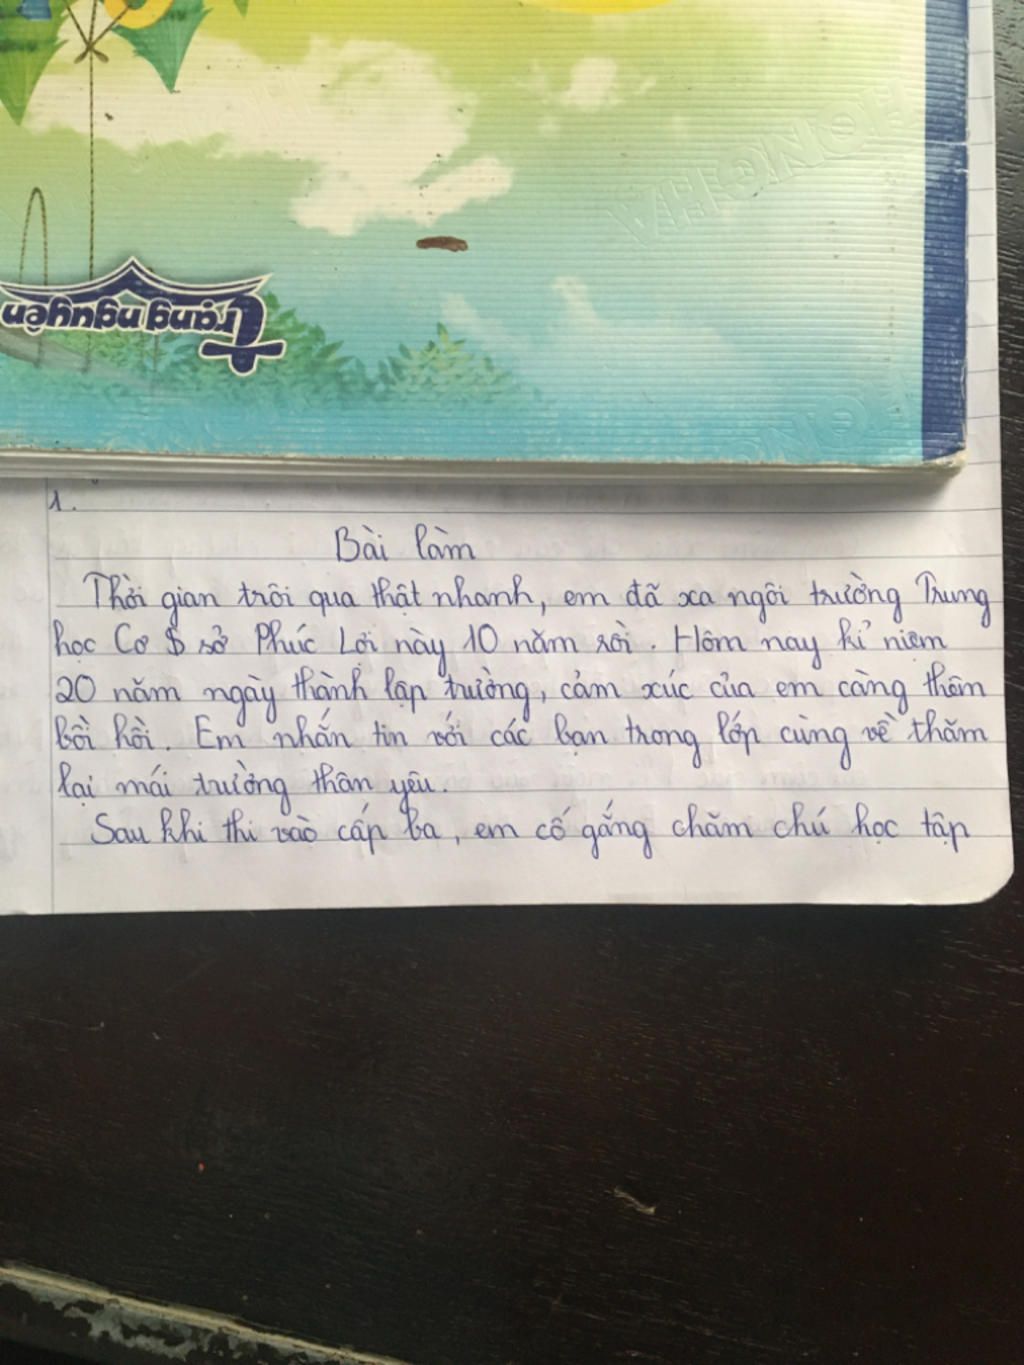 Trạng nguyên
VHONGHA
1.
Bài làm
Thời gian trôi qua thật nhanh, em đã xa ngôi trường Trung
học Cơ sở Phúc Lợi này 10 năm rồi. Hôm nay kỉ niệm
20 năm ngày thành lập trường, cảm xúc của em càng thêm
bồi hồi. Em nhắn tin với các bạn trong lớp cùng về thăm
lại mái trường thân yêu.
Sau khi thi vào cấp ba, em cố gắng chăm chú học tập